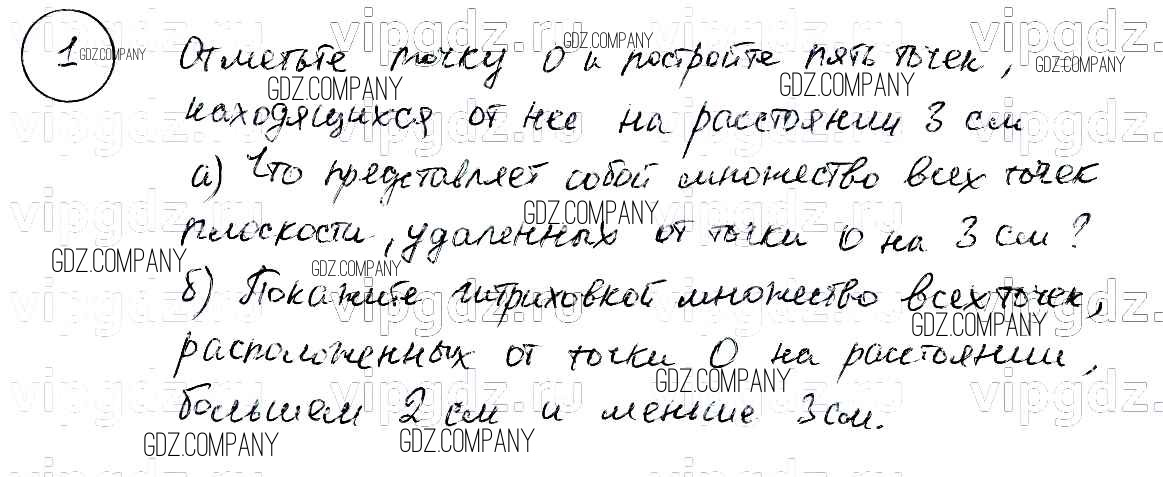 1 Отметьте точку О и постройте пять точек,
находящихся от нее на расстоянии 3 см
а) Что представляет собой множество всех точек
плоскости, удаленных от точки О на 3 см?
б) Покажите штриховкой множество всех точек,
расположенных от точки О на расстоянии,
большем 2 см и меньше 3 см.
vipgdz.ru
GDZ.COMPANY